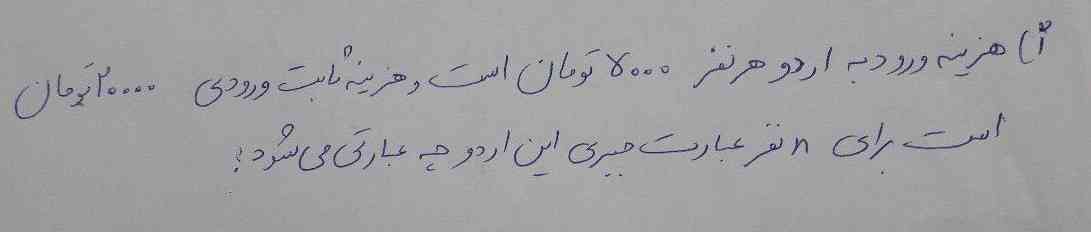 آ) هزینه ورود به اردو هر نفر ۱۵۰۰۰ تومان است و هزینه ثابت ورودی ۲۰۰۰۰ تومان
است برای n نفر عبارت جبری این اردو چه عبارتی می شود؟